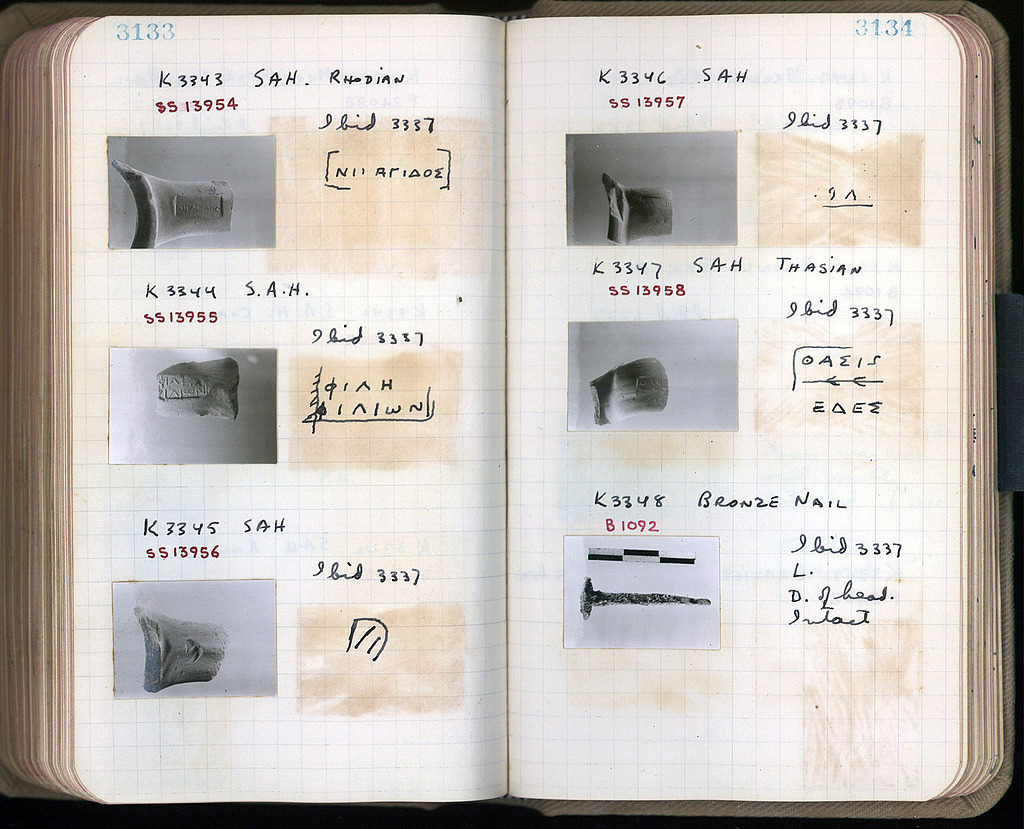 3133
K 3343 SAH. RHODIAN
SS 13954
Ibid 3337
[ΝΙΙ ΑΓΙΔΟΣ]
K 3344 S.A.H.
SS 13955
Ibid 3337
ΦΙΛΗ
ΦΙΛΙΩΝ
K 3345 SAH
SS 13956
Ibid 3337
3134
K 3346 SAH
SS 13957
Ibid 3337
K 3347 SAH THASIAN
SS 13958
Ibid 3337
ΘΑΣΙΣ
ΕΔΕΣ
K 3348 BRONZE NAIL
B 1092
Ibid 3337
L.
D. of head.
Intact